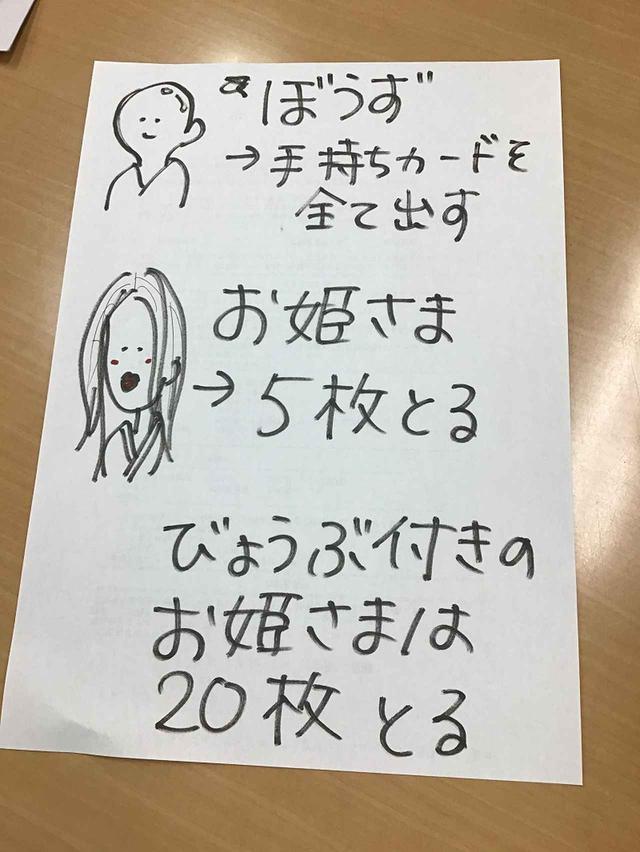 ぼうず
→手持ちカードを
全て出す
お姫さま
→5枚とる
びょうぶ付きの
お姫さまは
20枚とる